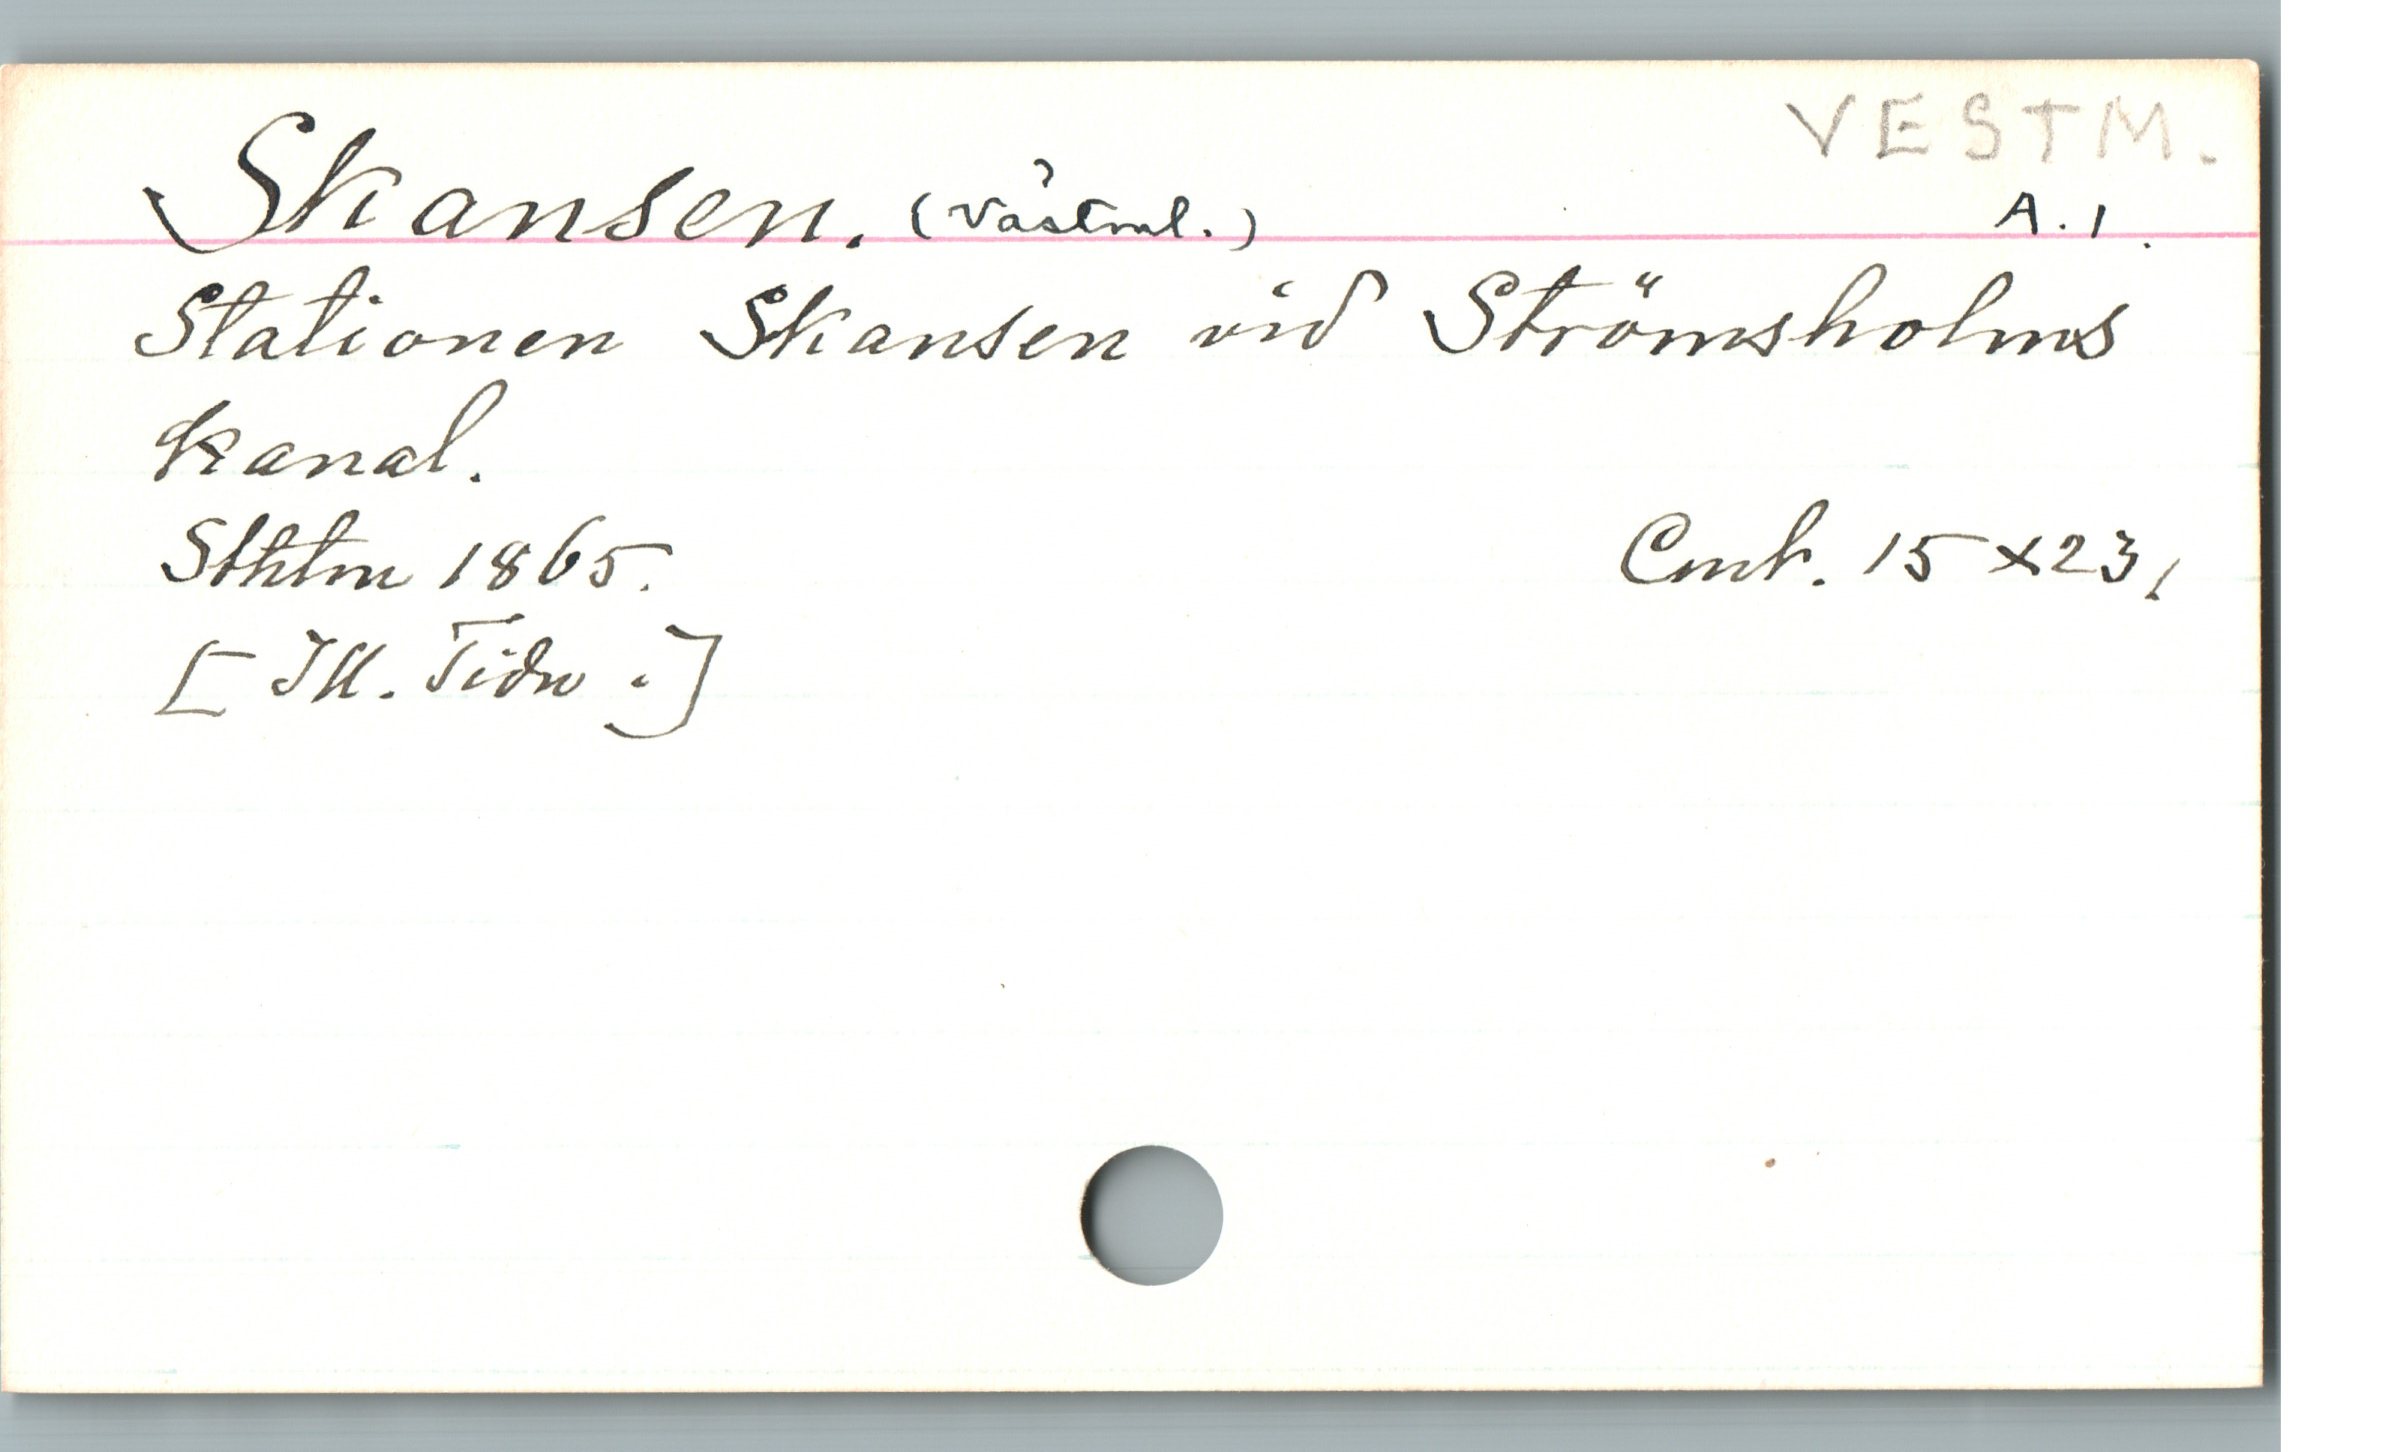 VESTM.
Skansen. (Västml.) A.1.
Stationen Skansen vid Strömsholms
kanal.
Sthlm 1865. 15 x 23,
[Ill. Tidn.]